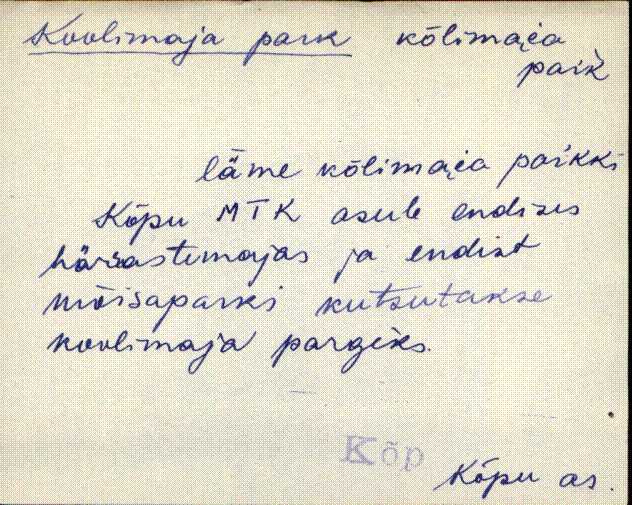 Koolimaja park kõlimaia
paik
läme kõlimaia paikki
Kõpu MTK asub endises
härrastemajas ja endist
mõisaparki kutsutakse
koolimaja pargiks.
Kõp
Kõpu as.